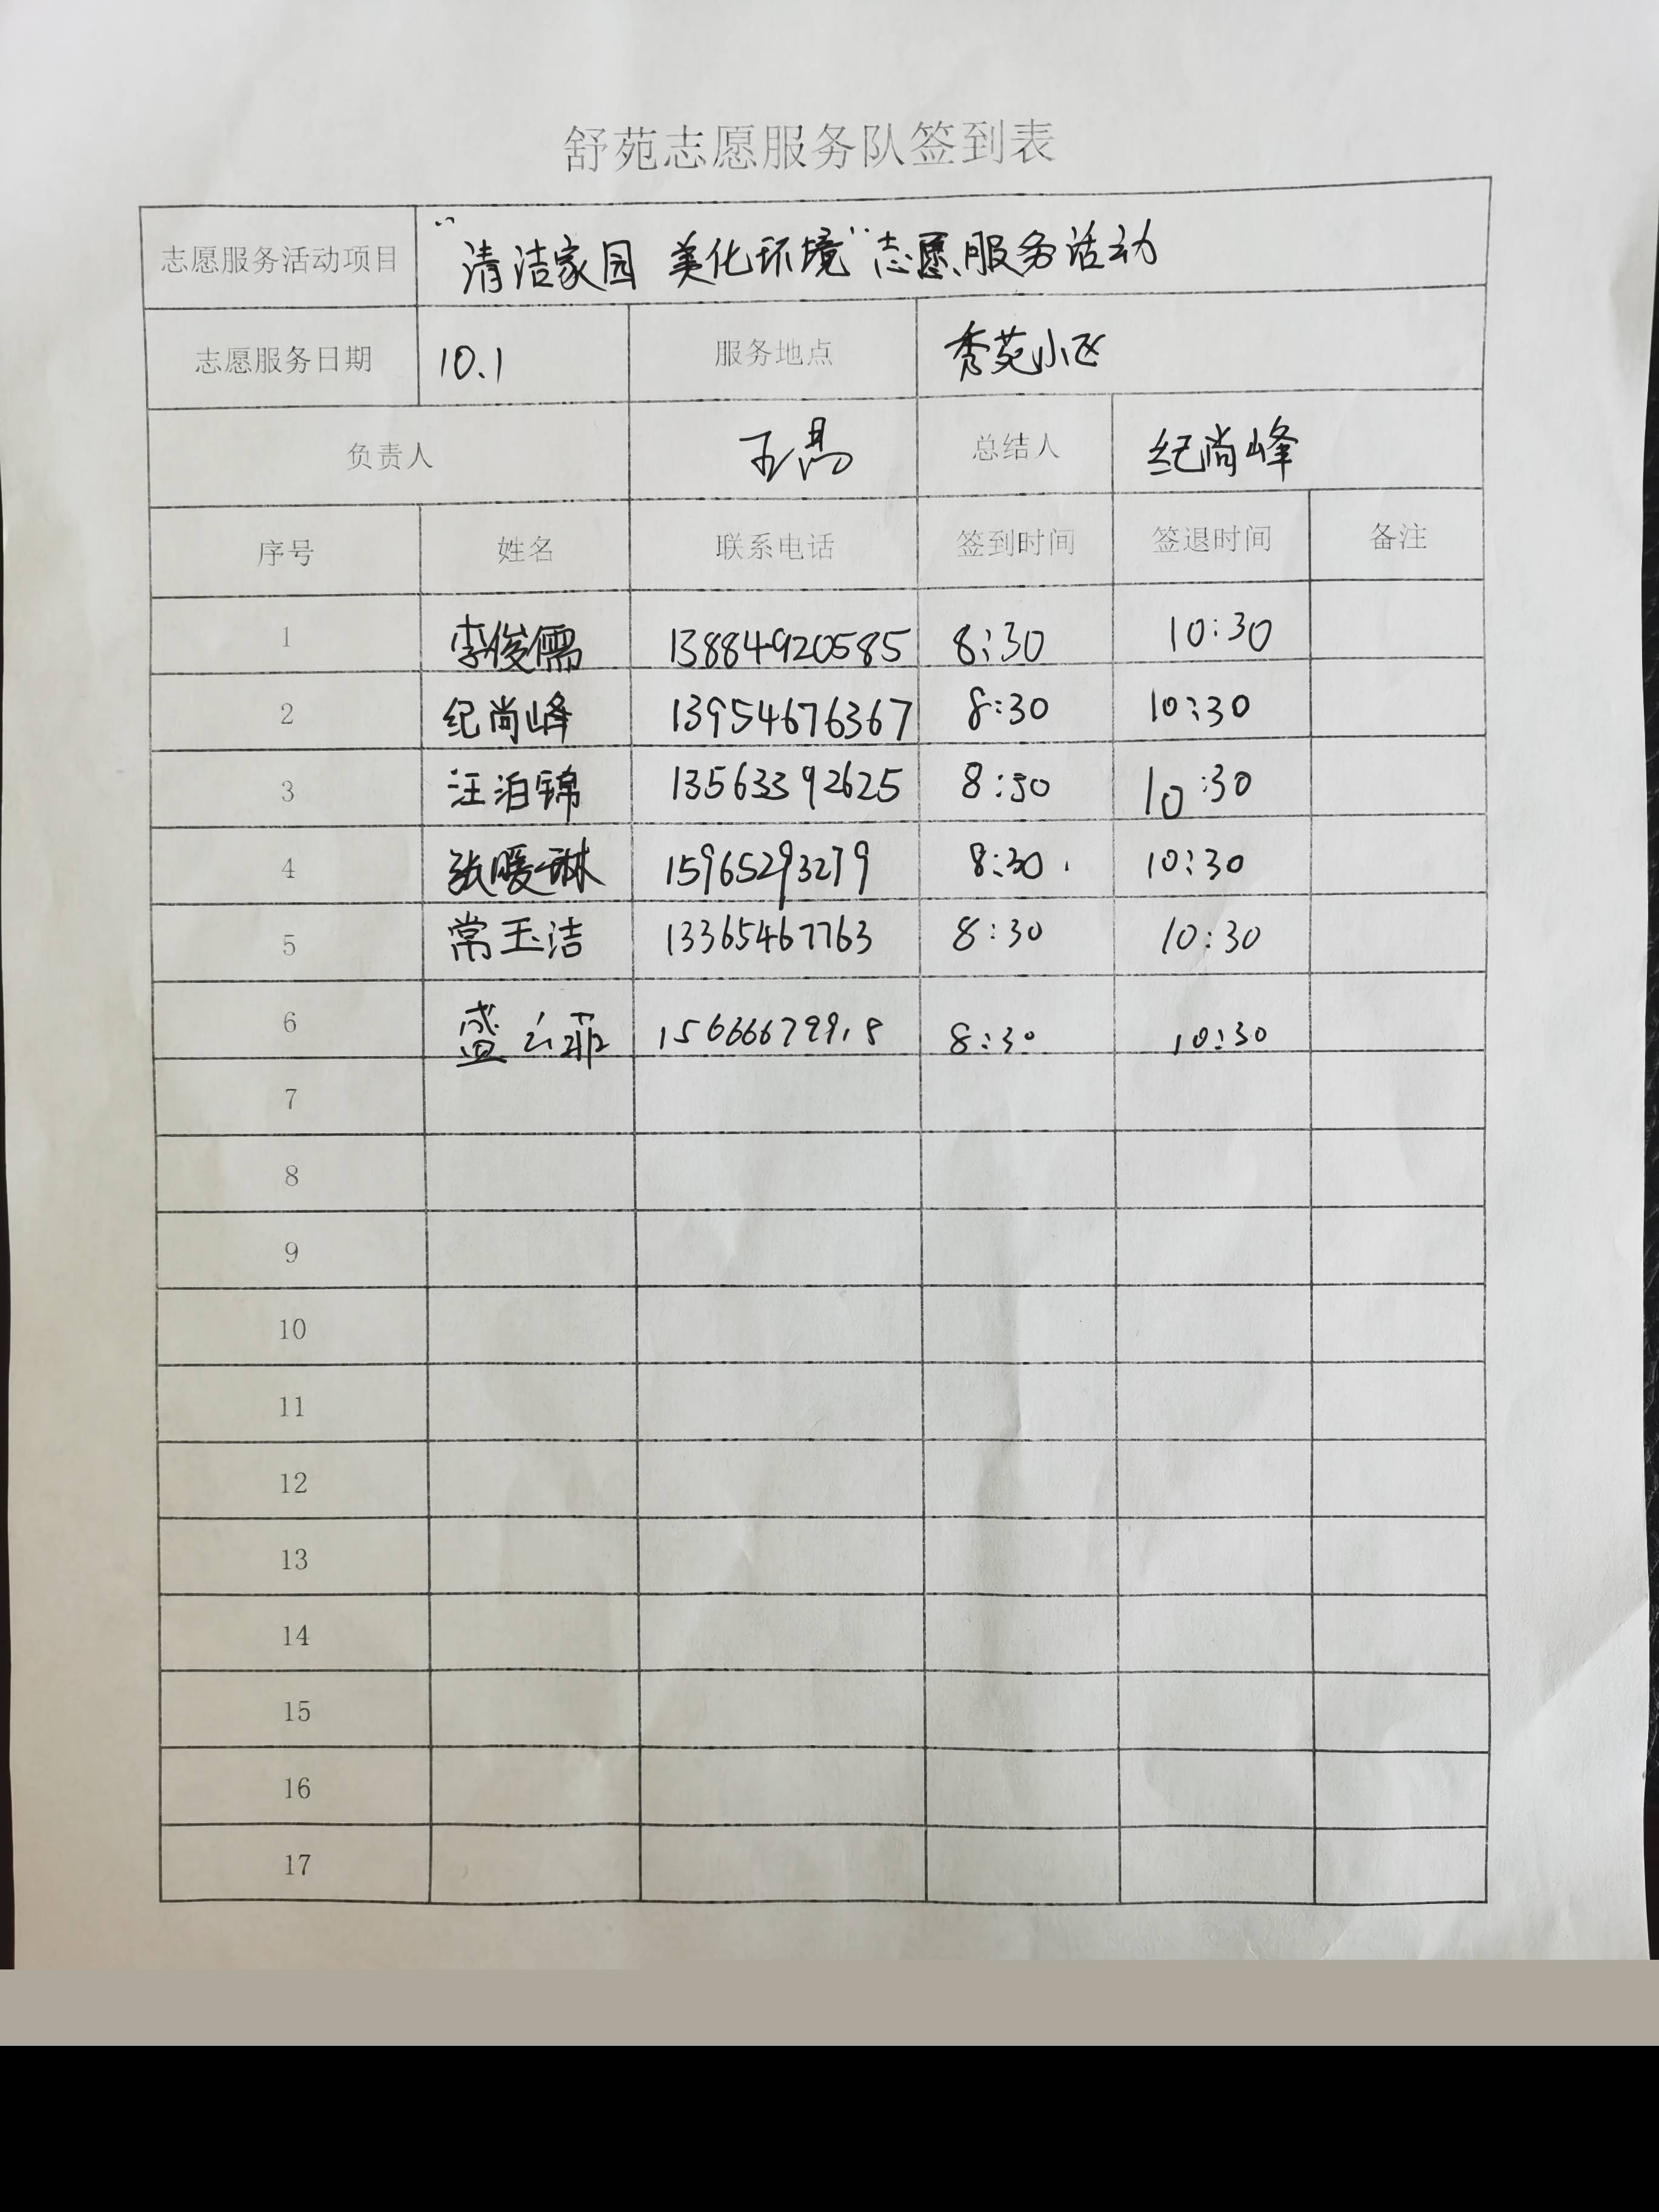 舒苑志愿服务队签到表
志愿服务活动项目 “清洁家园 美化环境”志愿服务活动
志愿服务日期 10.1 服务地点 秀苑小区
负责人 总结人 纪尚峰
序号 姓名 联系电话 签到时间 签退时间 备注
1 李俊儒 13884920585 8:30 10:30
2 纪尚峰 13954676367 8:30 10:30
3 汪泊锦 13563392625 8:30 10:30
4 张暖琳 15965293279 8:30 10:30
5 常玉洁 13365467763 8:30 10:30
6 盛云菲 8:30 10:30
7
8
9
10
11
12
13
14
15
16
17